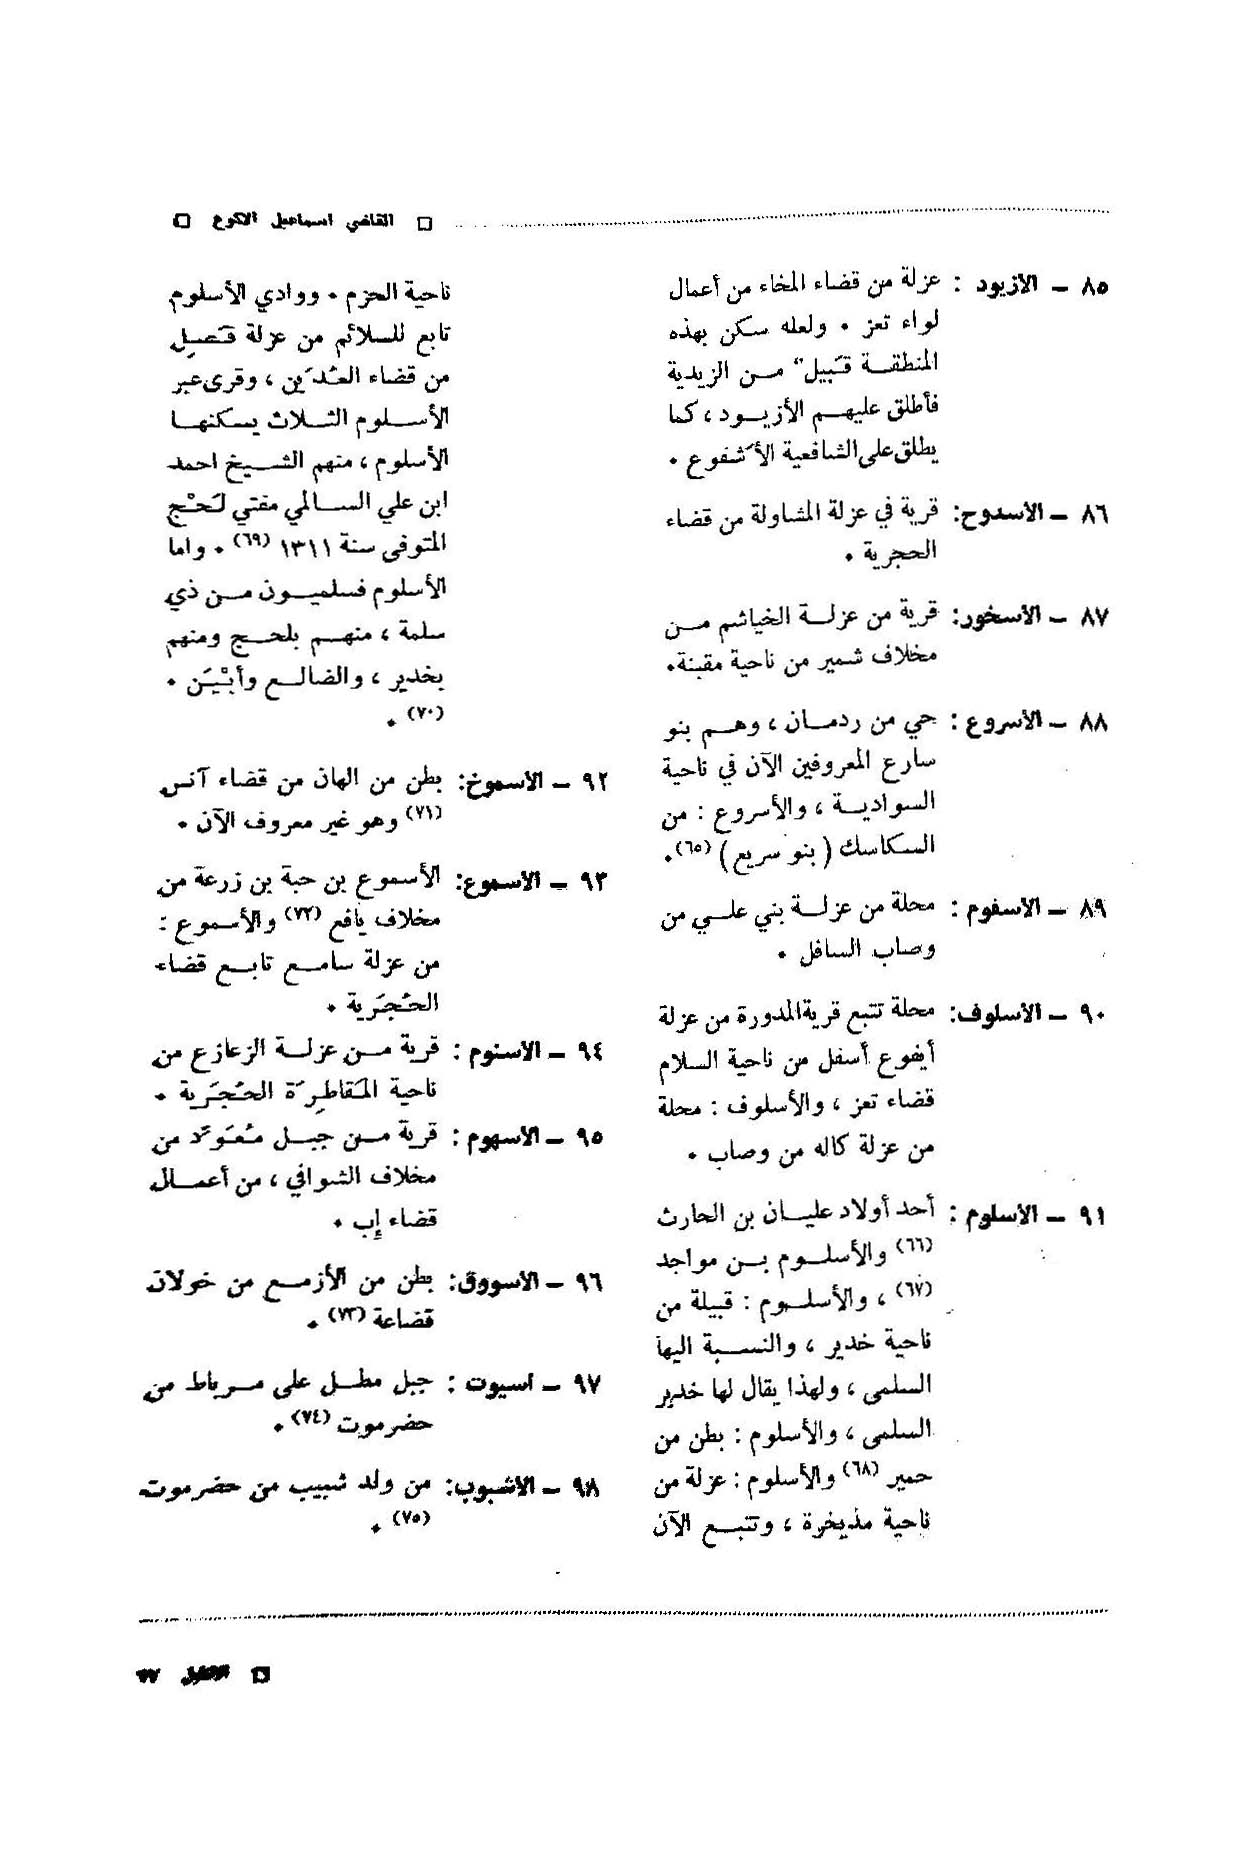 □ القاضي اسماعيل الاكوع □
٨٥ – الازيود : عزلة من قضاء المخاء من أعمال
لواء تعز • ولعله سكن بهذه
المنطقة قبيل من الزيدية
فأطلق عليهم الأزيود ، كما
يطلق على الشافعية الأشفوع •
٨٦ – الاسدوح: قرية في عزلة المشاولة من قضاء
الحجرية •
٨٧ – الاسخور: قرية من عزلة الخياشم من
مخلاف شمير من ناحية مقبنة•
٨٨ – الأسروع : حي من ردمان ، وهم بنو
سارع المعروفين الآن في ناحية
السوادية ، والأسروع : من
السكاسك ( بنو سريع ) (٦٥)•
٨٩ – الاسفوم : محلة من عزلة بني علي من
وصاب السافل •
٩٠ – الأسلوف: محلة تتبع قرية المدورة من عزلة
أيفوع أسفل من ناحية السلام
قضاء تعز ، والأسلوف : محلة
من عزلة كاله من وصاب •
٩١ – الاسلوم : أحد أولاد عليان بن الحارث
(٦٦) والأسلوم بن مواجد
(٦٧) ، والأسلوم : قبيلة من
ناحية خدير ، والنسبة اليها
السلمى ، ولهذا يقال لها خدير
السلمى ، والأسلوم : بطن من
حمير (٦٨) والأسلوم : عزلة من
ناحية مذيخرة ، وتتبع الآن
ناحية الحزم • ووادي الأسلوم
تابع للسلائم من عزلة قصل
من قضاء العُدَين ، وقرى عبر
الأسلوم الثلاث يسكنها
الأسلوم ، منهم الشيخ احمد
ابن علي السالمي مفتي لَحْج
المتوفى سنة ١٣١١ (٦٩) • واما
الأسلوم فسلميون من ذي
سلمة ، منهم بلحج ومنهم
بخدير ، والضالع وأبْيَن •
(٧٠) •
٩٢ – الاسموخ: بطن من الهان من قضاء آنس
(٧١) وهو غير معروف الآن •
٩٣ – الاسموع: الأسموع بن حبة بن زرعة من
مخلاف يافع (٧٢) والأسموع :
من عزلة سامع تابع قضاء
الحُجَرية •
٩٤ – الاسنوم : قرية من عزلة الزعازع من
ناحية المَقاطِرَة الحُجَرية •
٩٥ – الاسهوم : قرية من جبل مُعَوَّد من
مخلاف الشوافي ، من أعمال
قضاء إب •
٩٦ – الاسووق: بطن من الأزمع من خولان
قضاعة (٧٣) •
٩٧ – اسيوت : جبل مطل على مرباط من
حضرموت (٧٤) •
٩٨ – الاشبوب: من ولد شبيب من حضرموت
(٧٥) •
□ الاكليل ٧٧